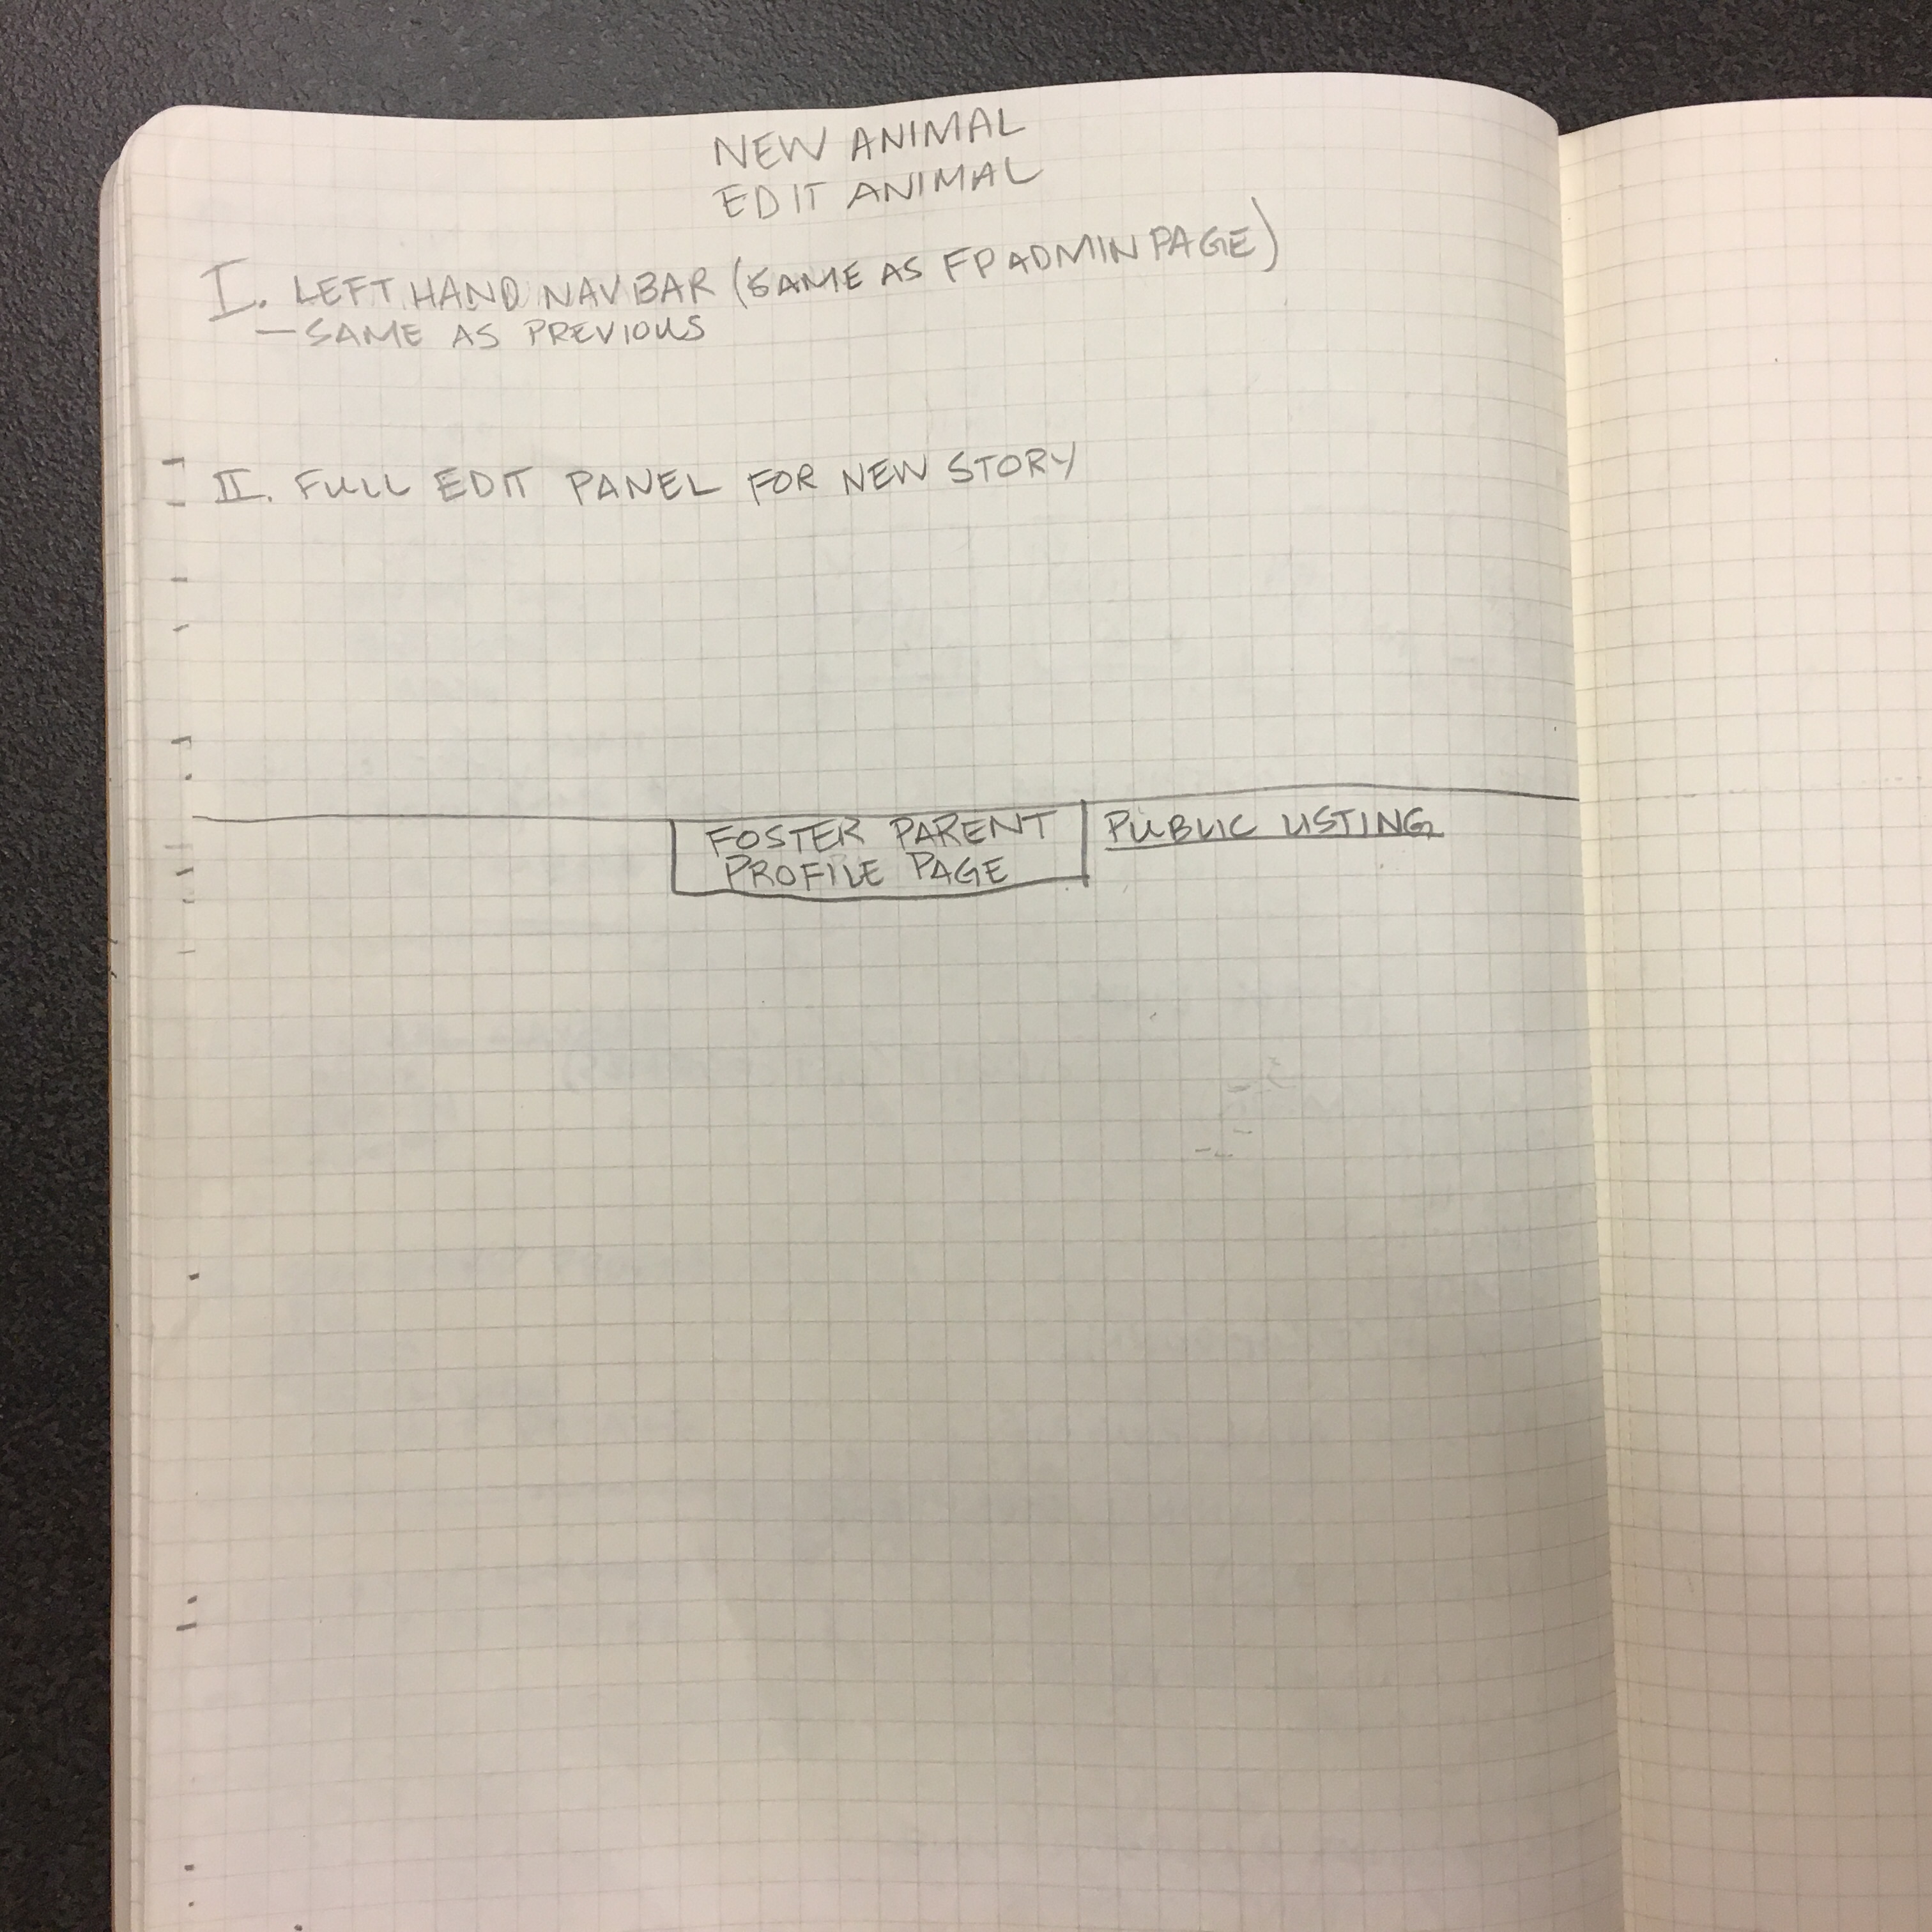 NEW ANIMAL
EDIT ANIMAL
I. LEFT HAND NAV BAR (SAME AS FP ADMIN PAGE)
— SAME AS PREVIOUS
II. FULL EDIT PANEL FOR NEW STORY
FOSTER PARENT
PROFILE PAGE
PUBLIC LISTING